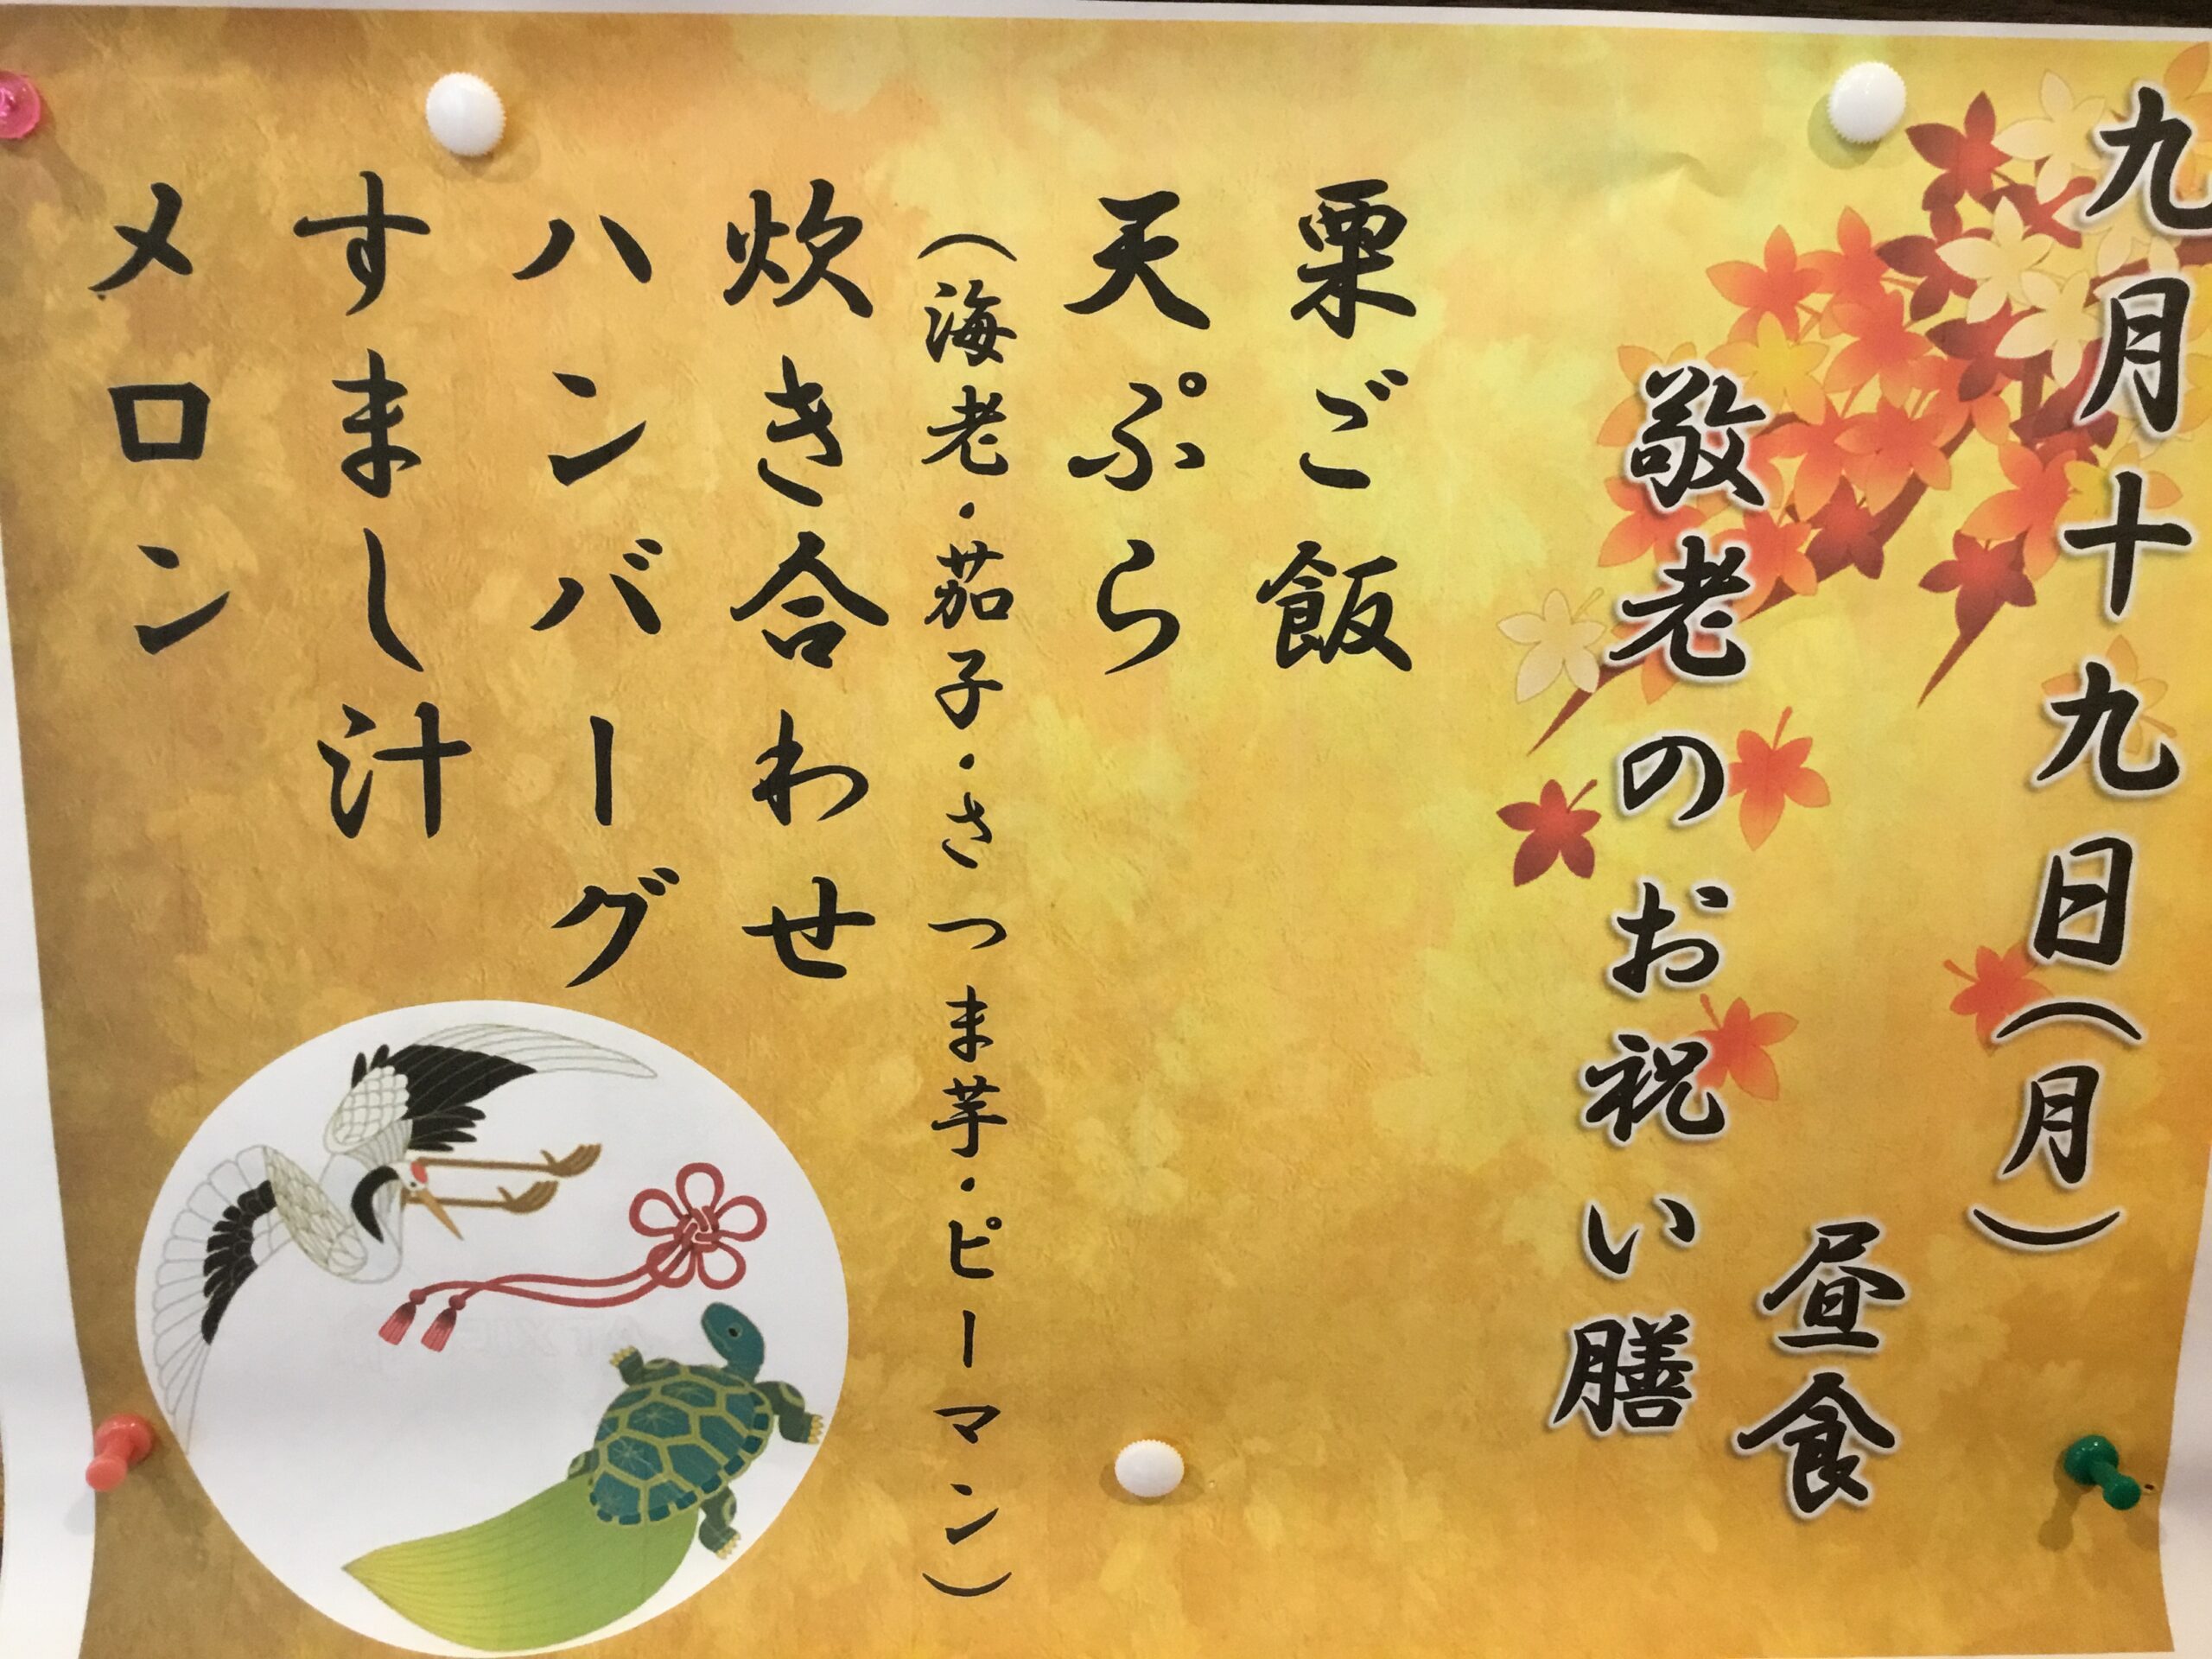 九月十九日(月)
昼食
敬老のお祝い膳
栗ご飯
天ぷら
(海老・茄子・さつま芋・ピーマン)
炊き合わせ
ハンバーグ
すまし汁
メロン